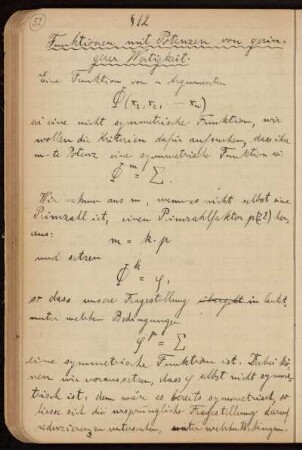 52
§12
Funktionen mit Potenzen von gerin-
gerer Wertigkeit.
Eine Funktion von n Argumenten
Φ(r₁, r₂, ... rₙ)
sei eine nicht symmetrische Funktion, wir
wollen die Kriterien dafür aufsuchen, dass ihre
m-te Potenz eine symmetrische Funktion sei
Φᵐ = Σ.
Wir nehmen aus m, wenn es nicht selbst eine
Primzahl ist, einen Primzahlfaktor p(≥2) her-
aus:
m = k·p
und setzen
Φᵏ = φ,
so dass unsere Fragestellung lautet,
unter welchen Bedingungen
φᵖ = Σ
eine symmetrische Funktion ist. Dabei kö-
nnen wir voraussetzen, dass φ selbst nicht symme-
trisch ist, denn wär es bereits symmetrisch, so
liesse sich die ursprüngliche Fragestellung darauf
reduzieren zu untersuchen, unter welchen Bedingun-